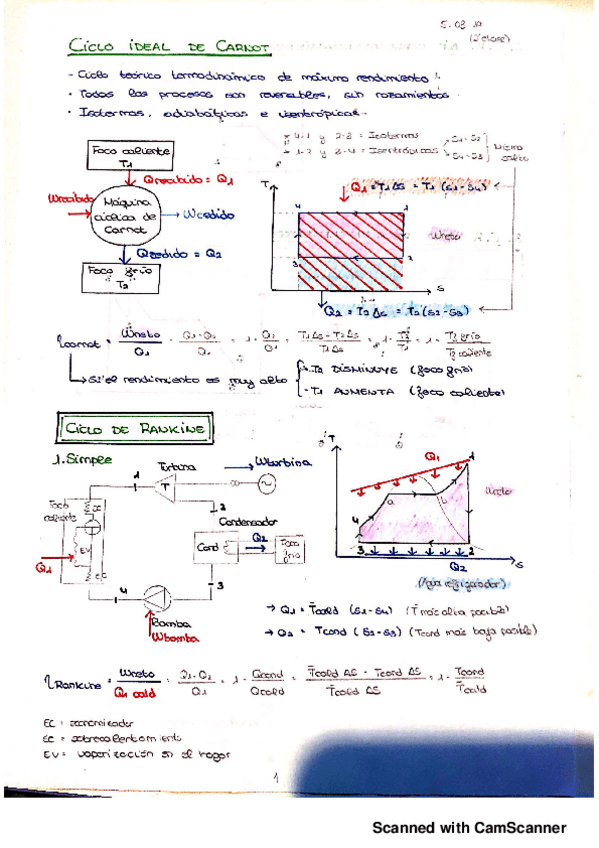 5.03.19
(2ª clase)
CICLO IDEAL DE CARNOT
- Ciclo teórico termodinámico de máximo rendimiento
· Todos los procesos son reversibles, sin rozamientos
· Isotermas, adiabáticas e isentrópicas.
* 4-1 y 2-3 = Isotermas
* 1-2 y 3-4 = Isentrópicas
S1-S2
S4-S3
Foco caliente
T1
Qrecibido = Q1
Wrecibido
Máquina
cíclica de
Carnot
Wcedido
Qcedido = Q2
Foco frío
T2
Q1 = T1 ΔS = T1 (S1-S4)
T
4
1
3
2
Wneto
S
Q2 = T2 ΔS = T2 (S2-S3)
ηcarnot = Wneto / Q1 = Q1-Q2 / Q1 = 1 - Q2 / Q1 = T1 ΔS - T2 ΔS / T1 ΔS = 1 - T2 / T1 = 1 - T2 frío / T1 caliente
Si el rendimiento es muy alto
- T2 DISMINUYE (foco frío)
- T1 AUMENTA (foco caliente)
CICLO DE RANKINE
1. Simple
Turbina
Wturbina
1
T
2
Foco
caliente
EV
EC
Q1
Condensador
Cond
Q2
Foco
frío
4
3
Bomba
Wbomba
T
Q1
1
a
b
Wneto
4
3
2
S
Q2
(Agua refrigerador)
→ Q1 = Tcald (S1-S4) (T más alta posible)
→ Q2 = Tcond (S2-S3) (Tcond más baja posible)
ηRankine = Wneto / Q1 cald = Q1-Q2 / Q1 = 1 - Qcond / Qcald = Tcald ΔS - Tcond ΔS / Tcald ΔS = 1 - Tcond / Tcald
EC = economizador
SC = sobrecalentamiento
EV = vaporización en el hogar
1
Scanned with CamScanner